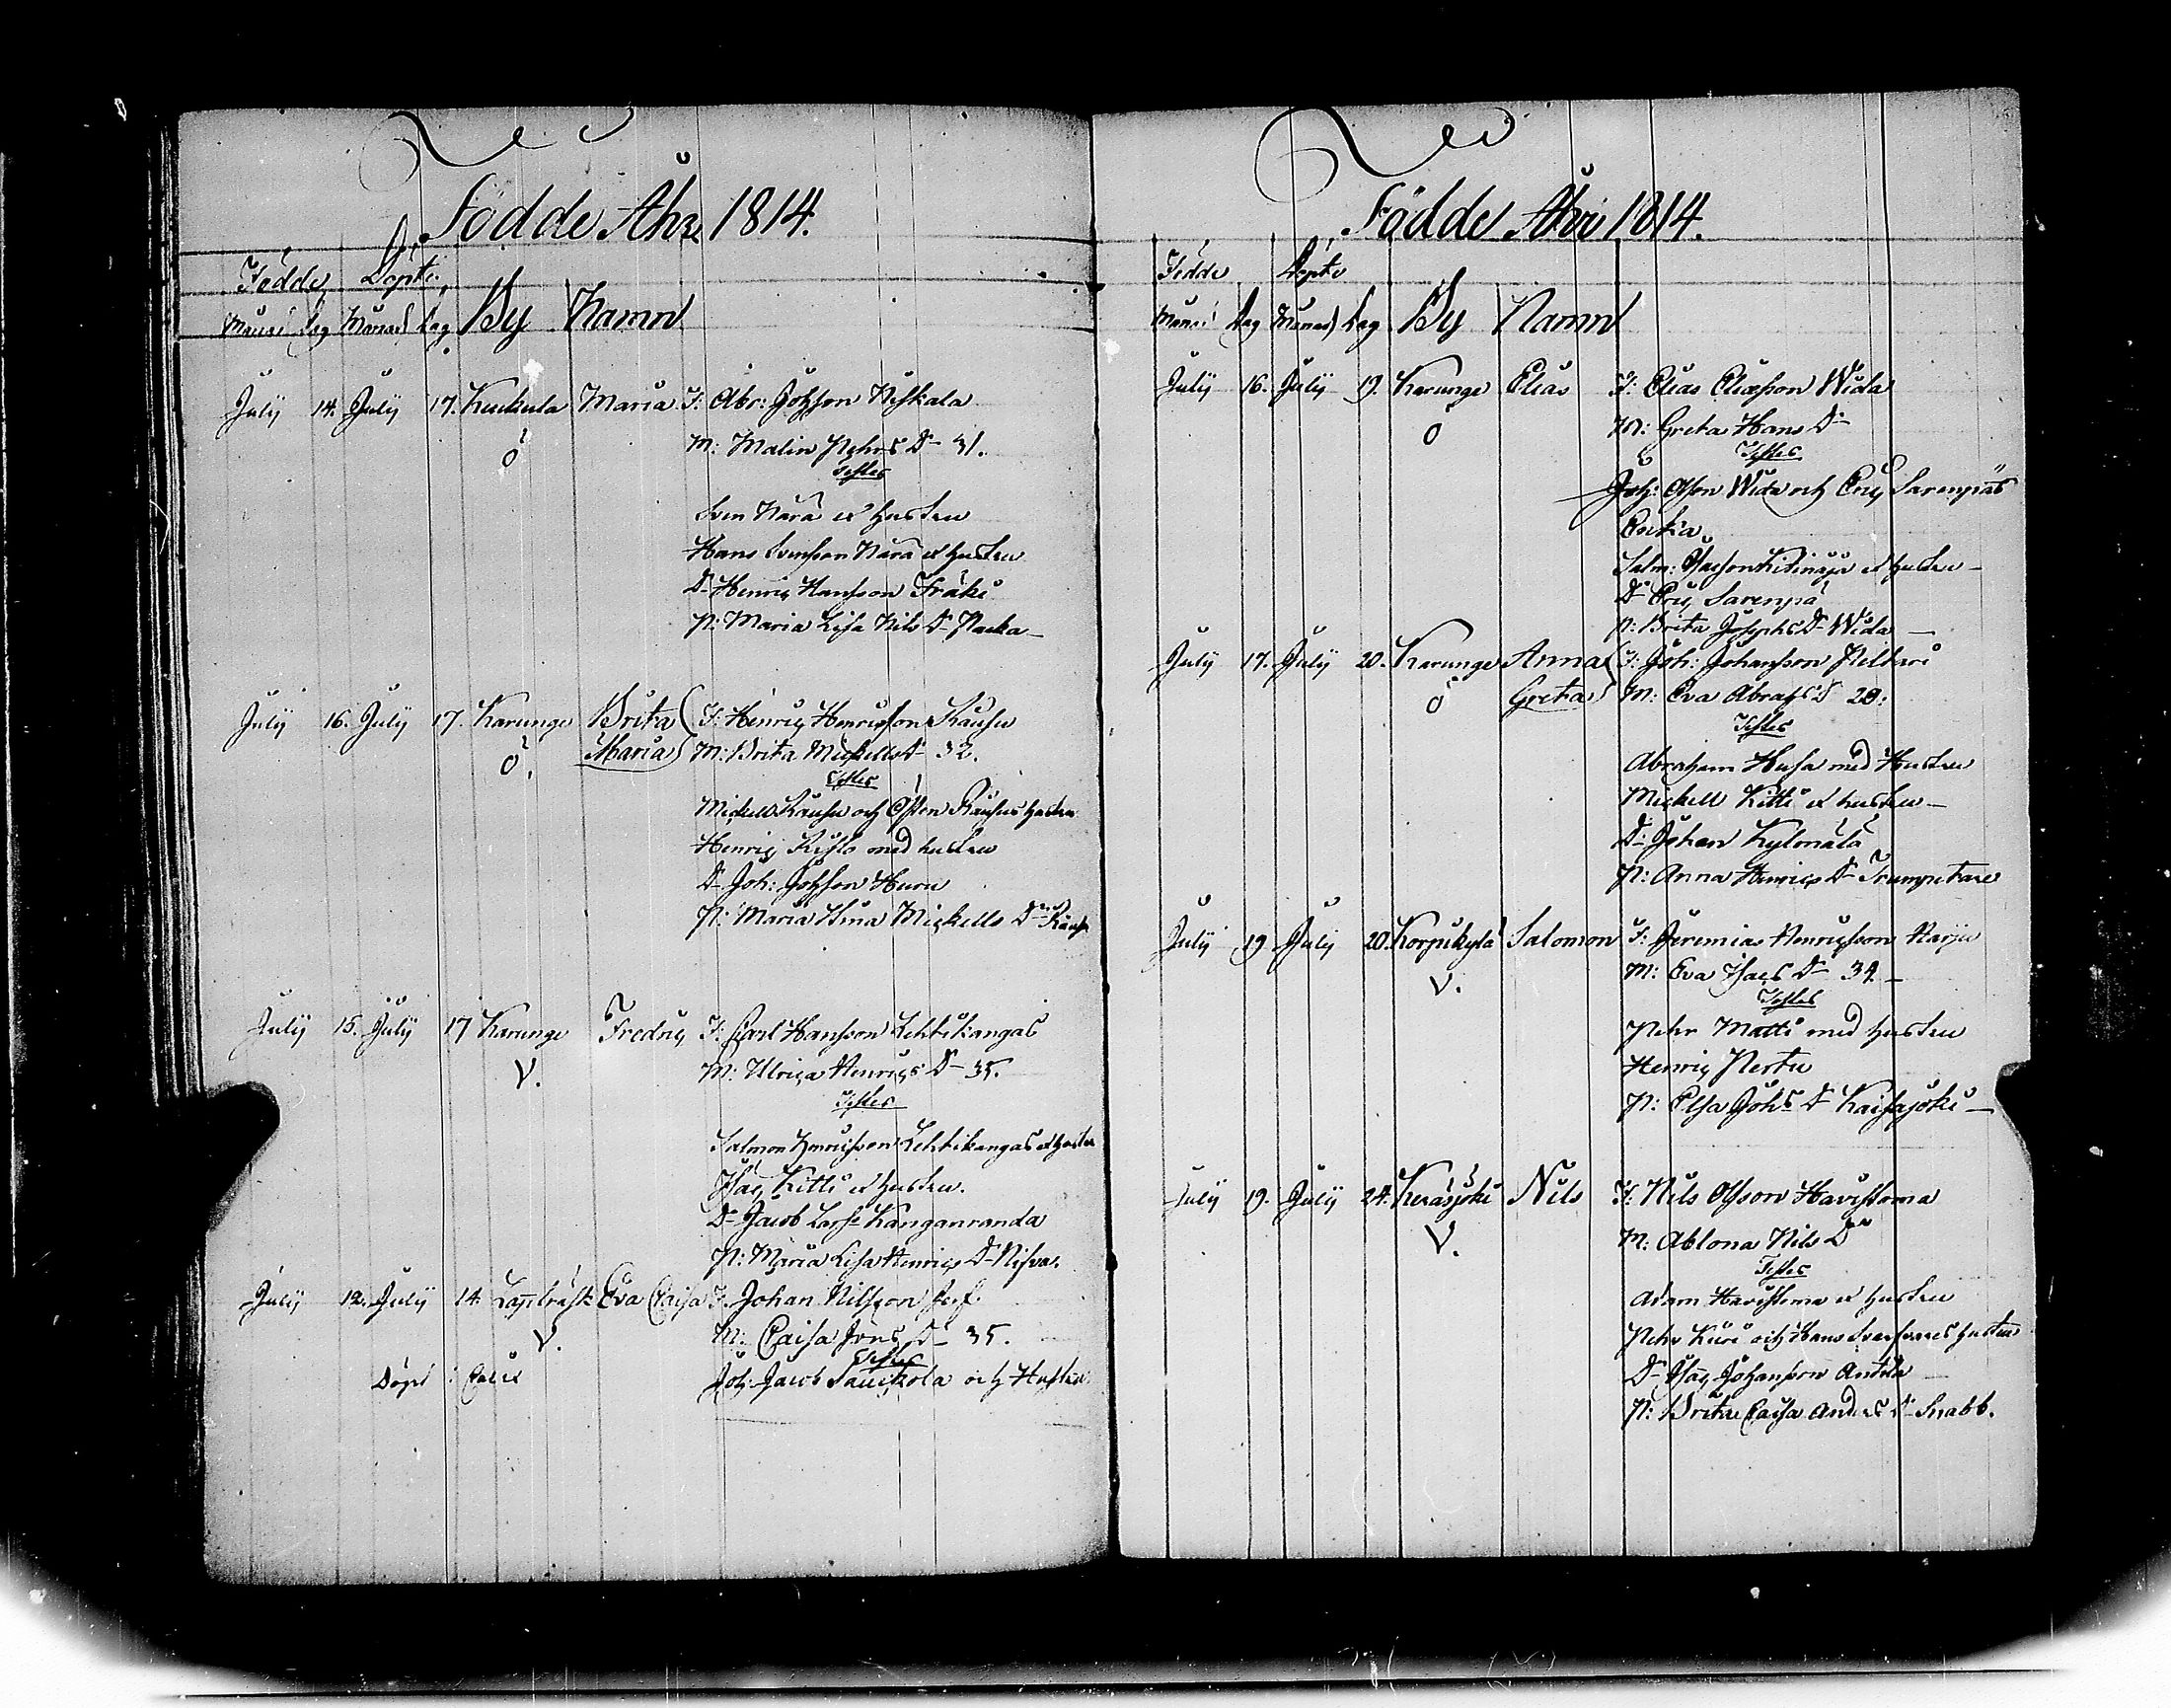 Födde Åhr 1814.
Födde Döpte
Månad Dag Månad Dag By Namn
July 14. July 17. Kuckula Maria F: Abr: Johsson Niskala
Ö M: Malin Pehrs Dr 31.
Testes
Sven Nära et hustru
Hans Svensson Nära et hustru
Dr Henric Hansson Fräki
P: Maria Lisa Nils Dr
July 16. July 17. Karunge Brita F: Henric Henricsson Rausu
Ö. Maria M: Brita Mickells Dr 32.
Testes
Mickell Rausu och Östen Rausus hustru
Henric Kislo med hustru
Dr Joh: Johsson Huru
P: Maria Stina Mickells Dr Rausu
July 15. July 17 Karunge Fredric F: Carl Hansson Lehtikangas
V. M: Ulrica Henrics Dr 35.
Testes
Salmon Henricsson Lehtikangas et hustru
Isac Kitti et hustru.
Dr Jacob Larss Kanganranda
P: Maria Lisa Henrics Dr Nisva.
July 12. July 14. Lappträsk Eva Caisa F. Johan Nilsson
V. M: Caisa Jöns Dr 35.
Testes
Döpt: Joh: Jacob och Hustru
Födde Åhr 1814.
Födde Döpte
Månad Dag Månad Dag By Namn
July 16. July 19. Karunge Elias F: Elias Eliasson Wida
Ö M: Greta Hans Dr
Testes
Joh: Olsson Wida och Eric Sarenpäs
Enkia
Salm: Isacson Kidinäja et hustru
Dr Eric Sarenpä
P: Brita Josephs Dr Wida
July 17. July 20. Karunge Anna F: Joh: Johansson Peltari
Ö Greta M: Eva Abrahs Dr 28.
Testes
Abraham Husa med Hustru
Mickell Kitti et hustru
Dr Johan Kylmälä
P: Anna Henrics Dr Trumpetare
July 19 July 20. Korpikylä Salomon F: Jeremias Henricsson Harju
V. M: Eva Isacs Dr 34
Testes
Pehr Matti med hustru
Henric Pertu
P: Elsa Johs Dr Kaisajoki
July 19. July 24. Keräsjoki Nils F: Nils Olsson Havistoma
V. M: Ablona Nils Dr
Testes
Adam Havistoma et hustru
Pehr Kuri och Hans hustru
Dr Isac Johansson Antila
P: Brita Caisa Anders Dr Snabb.